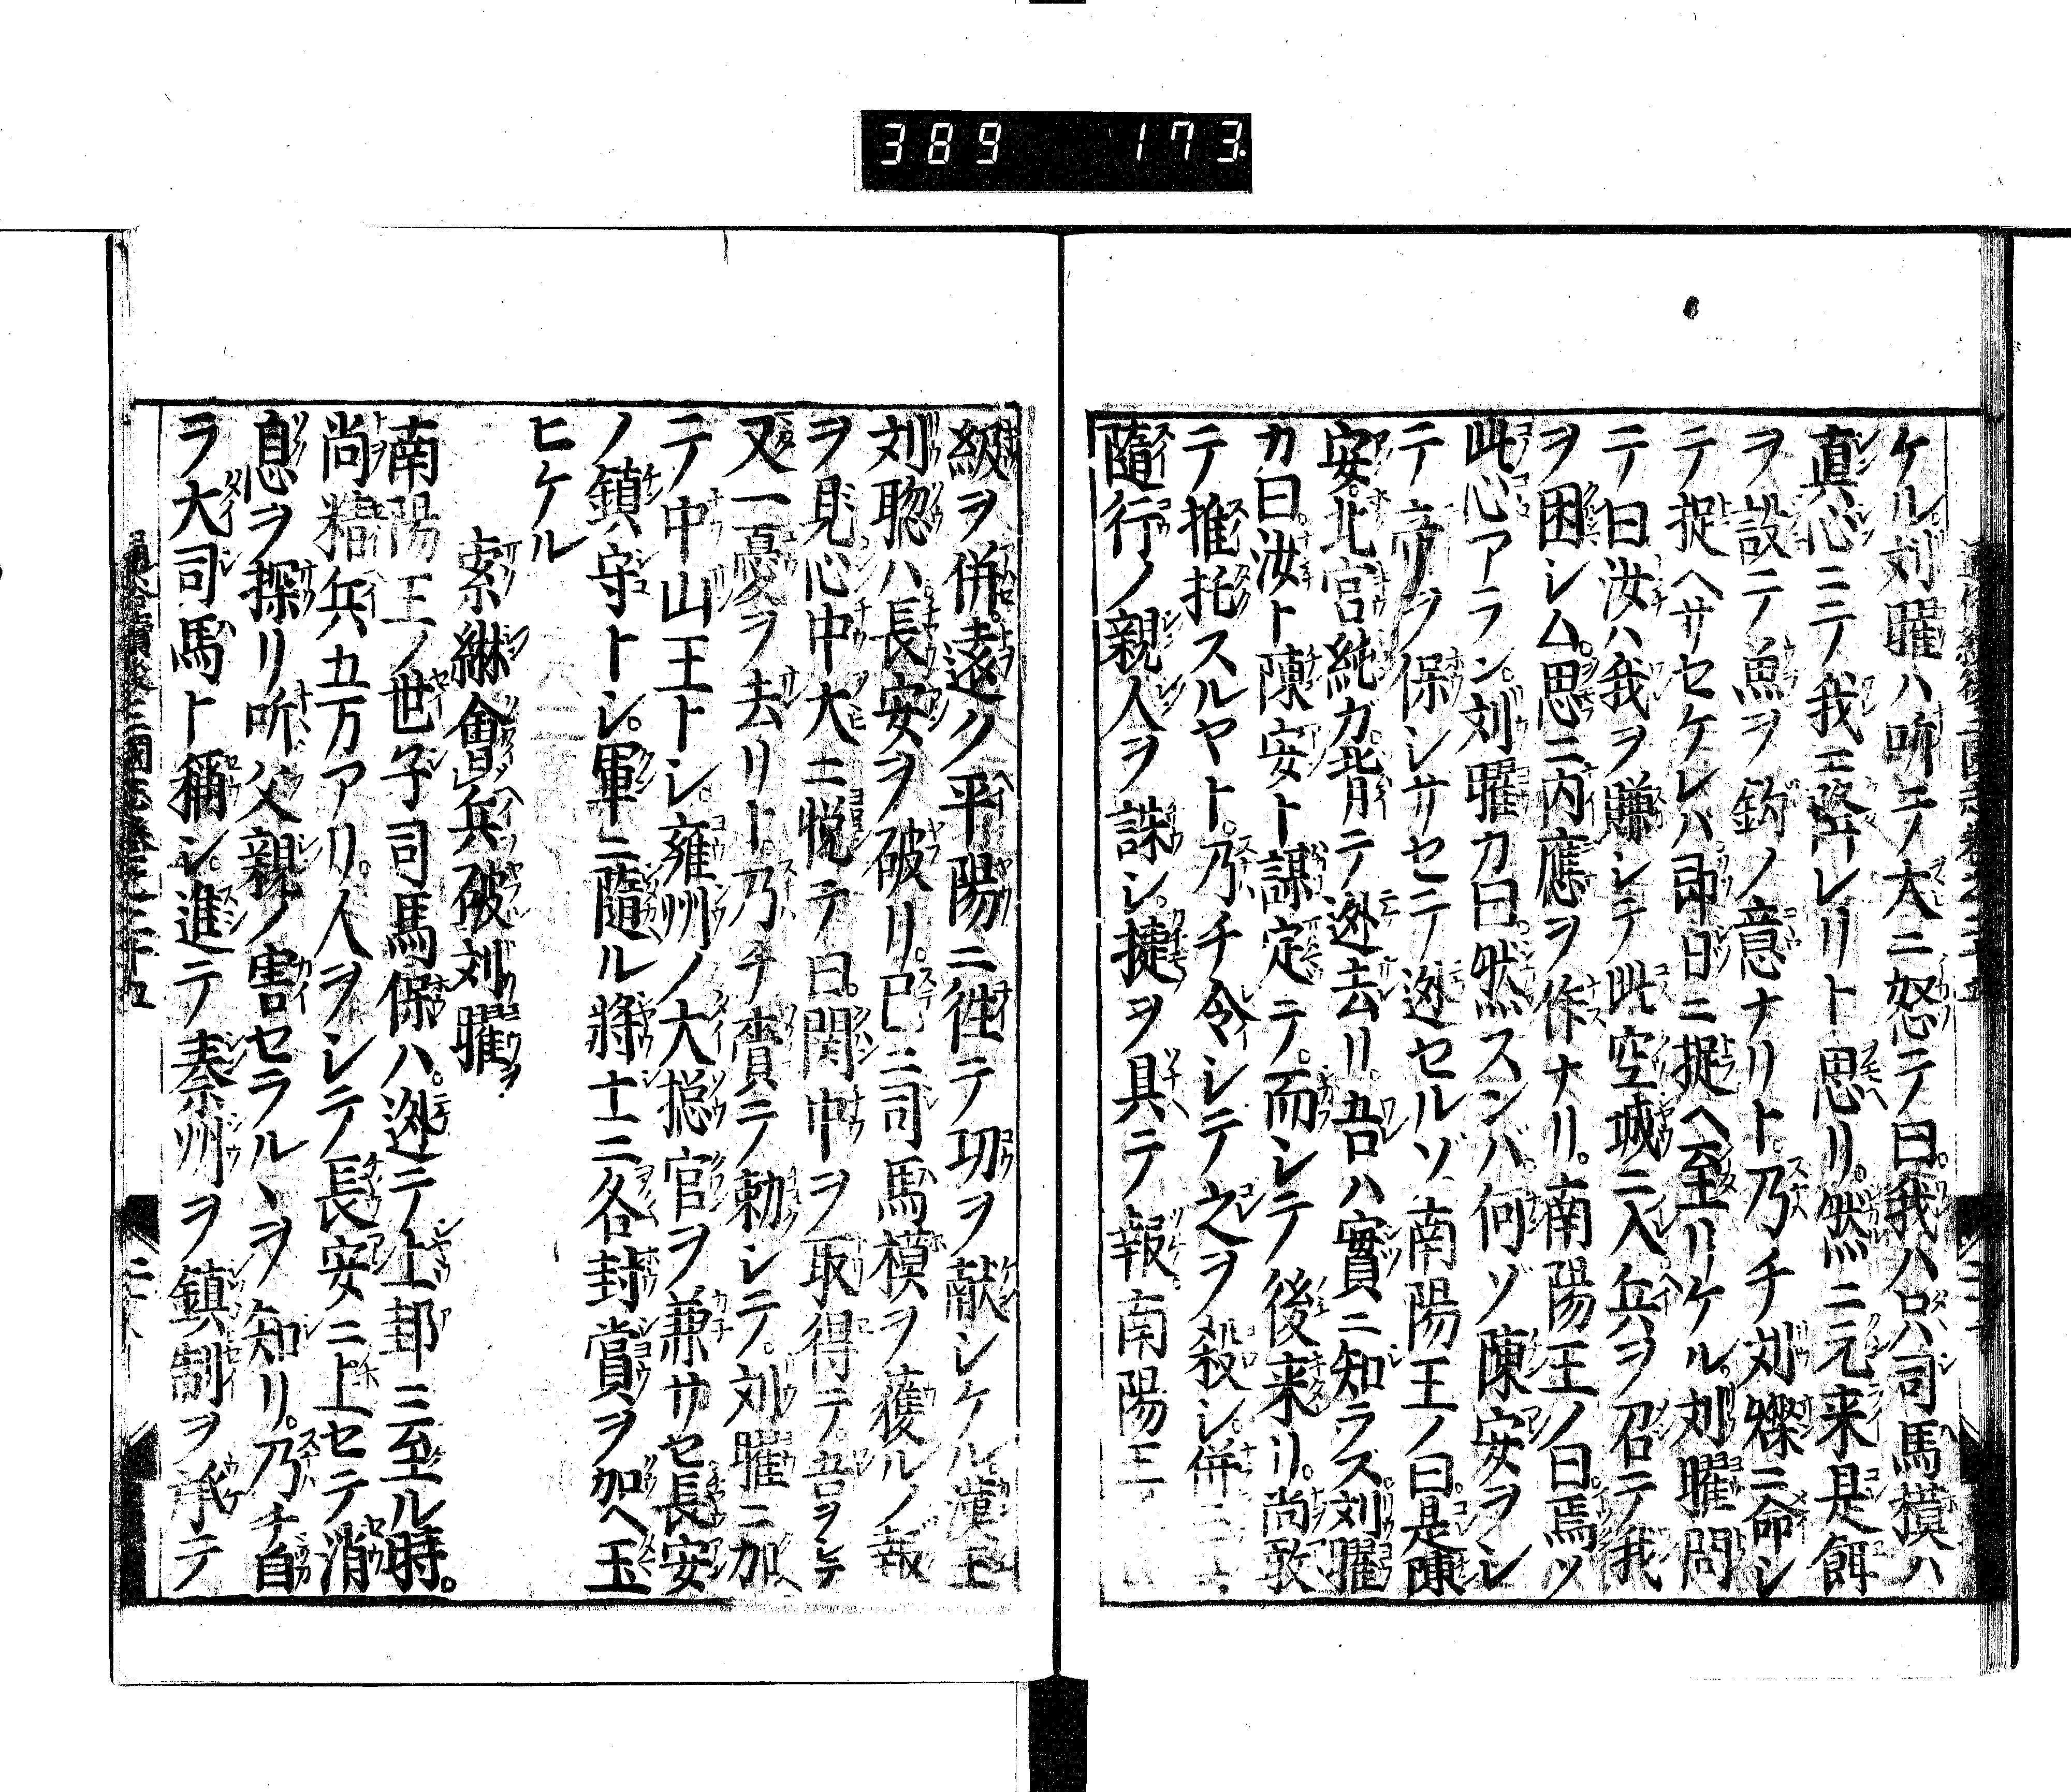 389 173
ケル刘曜ハ听テ大ニ怒テ曰我ハ只司馬模ハ
真心ニテ我ニ降レリト思リ然ニ元来是餌
ヲ設テ魚ヲ釣ノ意ナリト乃チ刘燦ニ命シ
テ捉ヘサセケレハ即日ニ捉ヘ至リケル刘曜問
テ曰汝ハ我ヲ賺シテ此空城ニ入兵ヲ召テ我
ヲ困シム思ニ内應ヲ作ナリ南陽王ノ曰焉ソ
此心アラン刘曜カ曰然スンバ何ゾ陳安ヲシ
テ帝ヲ保シサセテ迯セルゾ南陽王ノ曰是陳
安北宮純ガ背テ迯去リ吾ハ實ニ知ラズ刘曜
カ曰汝ト陳安ト謀定テ而シテ後来リ尚敢
テ推托スルヤト乃チ令シテ之ヲ殺シ併ニ
隨行ノ親人ヲ誅シ捷ヲ具テ報南陽王
級ヲ併遠ク平陽ニ往テ功ヲ献シケル漢主
刘聡ハ長安ヲ破リ已ニ司馬模ヲ獲ルノ報
ヲ見心中大ニ悦テ曰関中ヲ取得テ吾ヲシテ
又一憂ヲ去リト乃チ賚ニ勅シテ刘曜ニ加
テ中山王トシ雍州ノ大捴官ヲ兼サセ長安
ノ鎮守トシ軍ニ隨ル將士ニ各封賞ヲ加ヘ玉
ヒケル
索綝會兵破刘曜ヲ
南陽王ノ世子司馬保ハ迯テ上邽ニ至ル時
尚精兵五万アリ人ヲシテ長安ニ上セテ消
息ヲ探リ听父親ノ害セラルヽヲ知リ乃チ自
ラ大司馬ト稱シ進テ秦州ヲ鎮制ヲ承テ